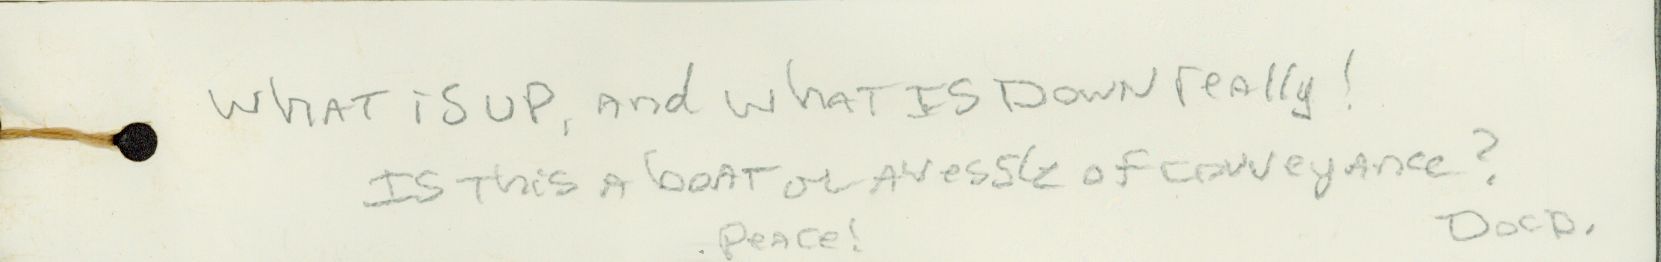 WhAT iS UP, And WhAT IS DOWN reAlly!
IS This A boAT or A vessle of conveyAnce?
PeAce!
Doc D.